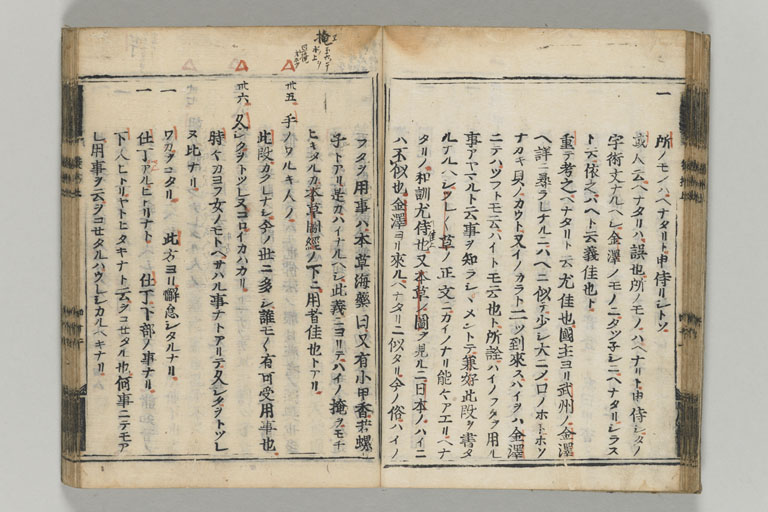 一 所ノモノハヘナタリト申侍リシトソ
或人云ヘナタリハ誤也所ノモノハヘナリト申侍シタノ
字術文ナルヘシ金澤ノモノニタツ子シニヘナタリシラス
ト云依之ハヘト云義佳也ト
重テ考之ヘナタリト云尤佳也國主ヨリ武州ノ金澤
ヘ詳ニ尋ラレナルニハヘニ似テ少シ大ニノロノホトホソ
ナカキ貝ノカウト又イノカラト二ッ到來スハイヲハ金澤
ニテハツフトモ云ハイトモ云也ト所詮ハイノフタヲ用ル
事アヤマルト云事ヲ知ラシメントテ兼好此段ヲ書タ
ルナルヘシ 草ノ正文ニカイノナリ能ヤアエリヘナ
タリノ和訓尤侍也又本草ノ圖ヲ見ルニ日本ノハイニ
ハ不似也金澤ヨリ來ルヘナタリニ似タリ今ノ俗ハイノ
フタヲ用事ハ本草海藥曰又有小甲香若螺
子トアリ是カハイナルヘシ此義ニヨリテハイノ掩ヲモチ
ヒキタルカ本草圖經ノ下ニ用者佳也トアリ
卅五 手ノワルキ人ノ
此段カクレナシ今ノ世ニ多シ誰モく有可受用事也
卅六 久シクヲトツレヌコロイカハカリ
時ヤカヨフ女ノモトヘサハル事ナトアリテ久シクヲトツレ
ヌ比ナリ
一 ワカヲコタリ 此方ヨリ懈怠シタルナリ
一 仕丁アルヒトリナト 仕丁下部ノ事ナリ
下人ヒトリヤトヒタキナト云ヲコセタル也何事ニテモア
レ用事ヲ云ヲコセタルハウレシカルヘキナリ
掩